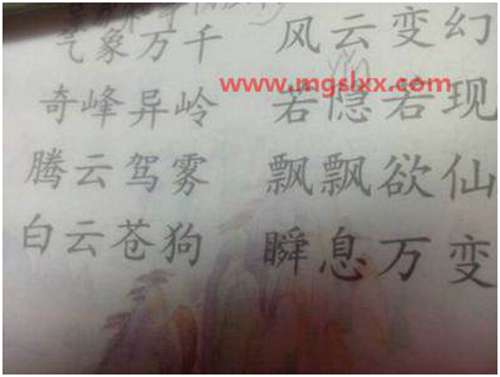 气象万千 风云变幻
www.mgslxx.com
奇峰异岭 若隐若现
腾云驾雾 飘飘欲仙
白云苍狗 瞬息万变